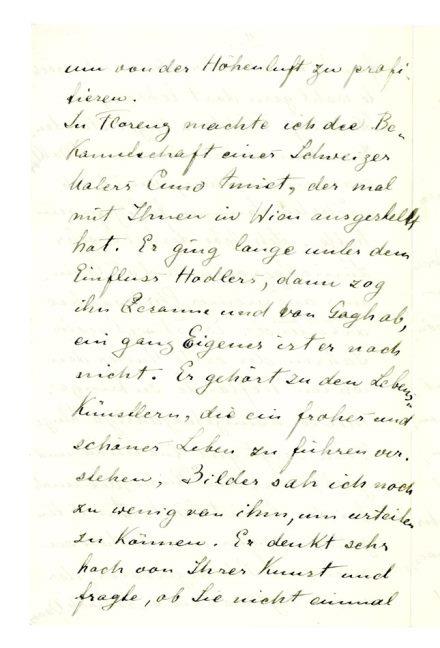 um von der Höhenluft zu profi-
tieren.
In Florenz machte ich die Be-
kanntschaft eines Schweizer
Malers Cuno Amiet, der mal
mit Ihnen in Wien ausgestellt
hat. Er ging lange unter dem
Einfluss Hodlers, dann zog
ihn Cezanne und van Gogh ab,
ein ganz Eigener ist er noch
nicht. Er gehört zu den Lebens-
Künstlern, die ein frohes und
schönes Leben zu führen ver-
stehen, Bilder sah ich noch
zu wenig von ihm, um urteilen
zu können. Er denkt sehr
hoch von Ihrer Kunst und
fragte, ob Sie nicht einmal